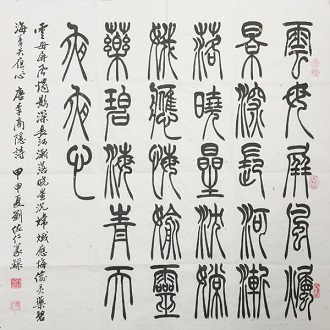 雲母屏風燭
景深長河漸
落曉曐沈嫦
娥應悔媮靈
藥碧海青天
夜夜心
雲母屏風燭影深長河漸落曉星沉嫦娥應悔偷灵藥碧
海青天夜夜心 唐李商隱詩 甲申夏劉佐仁篆